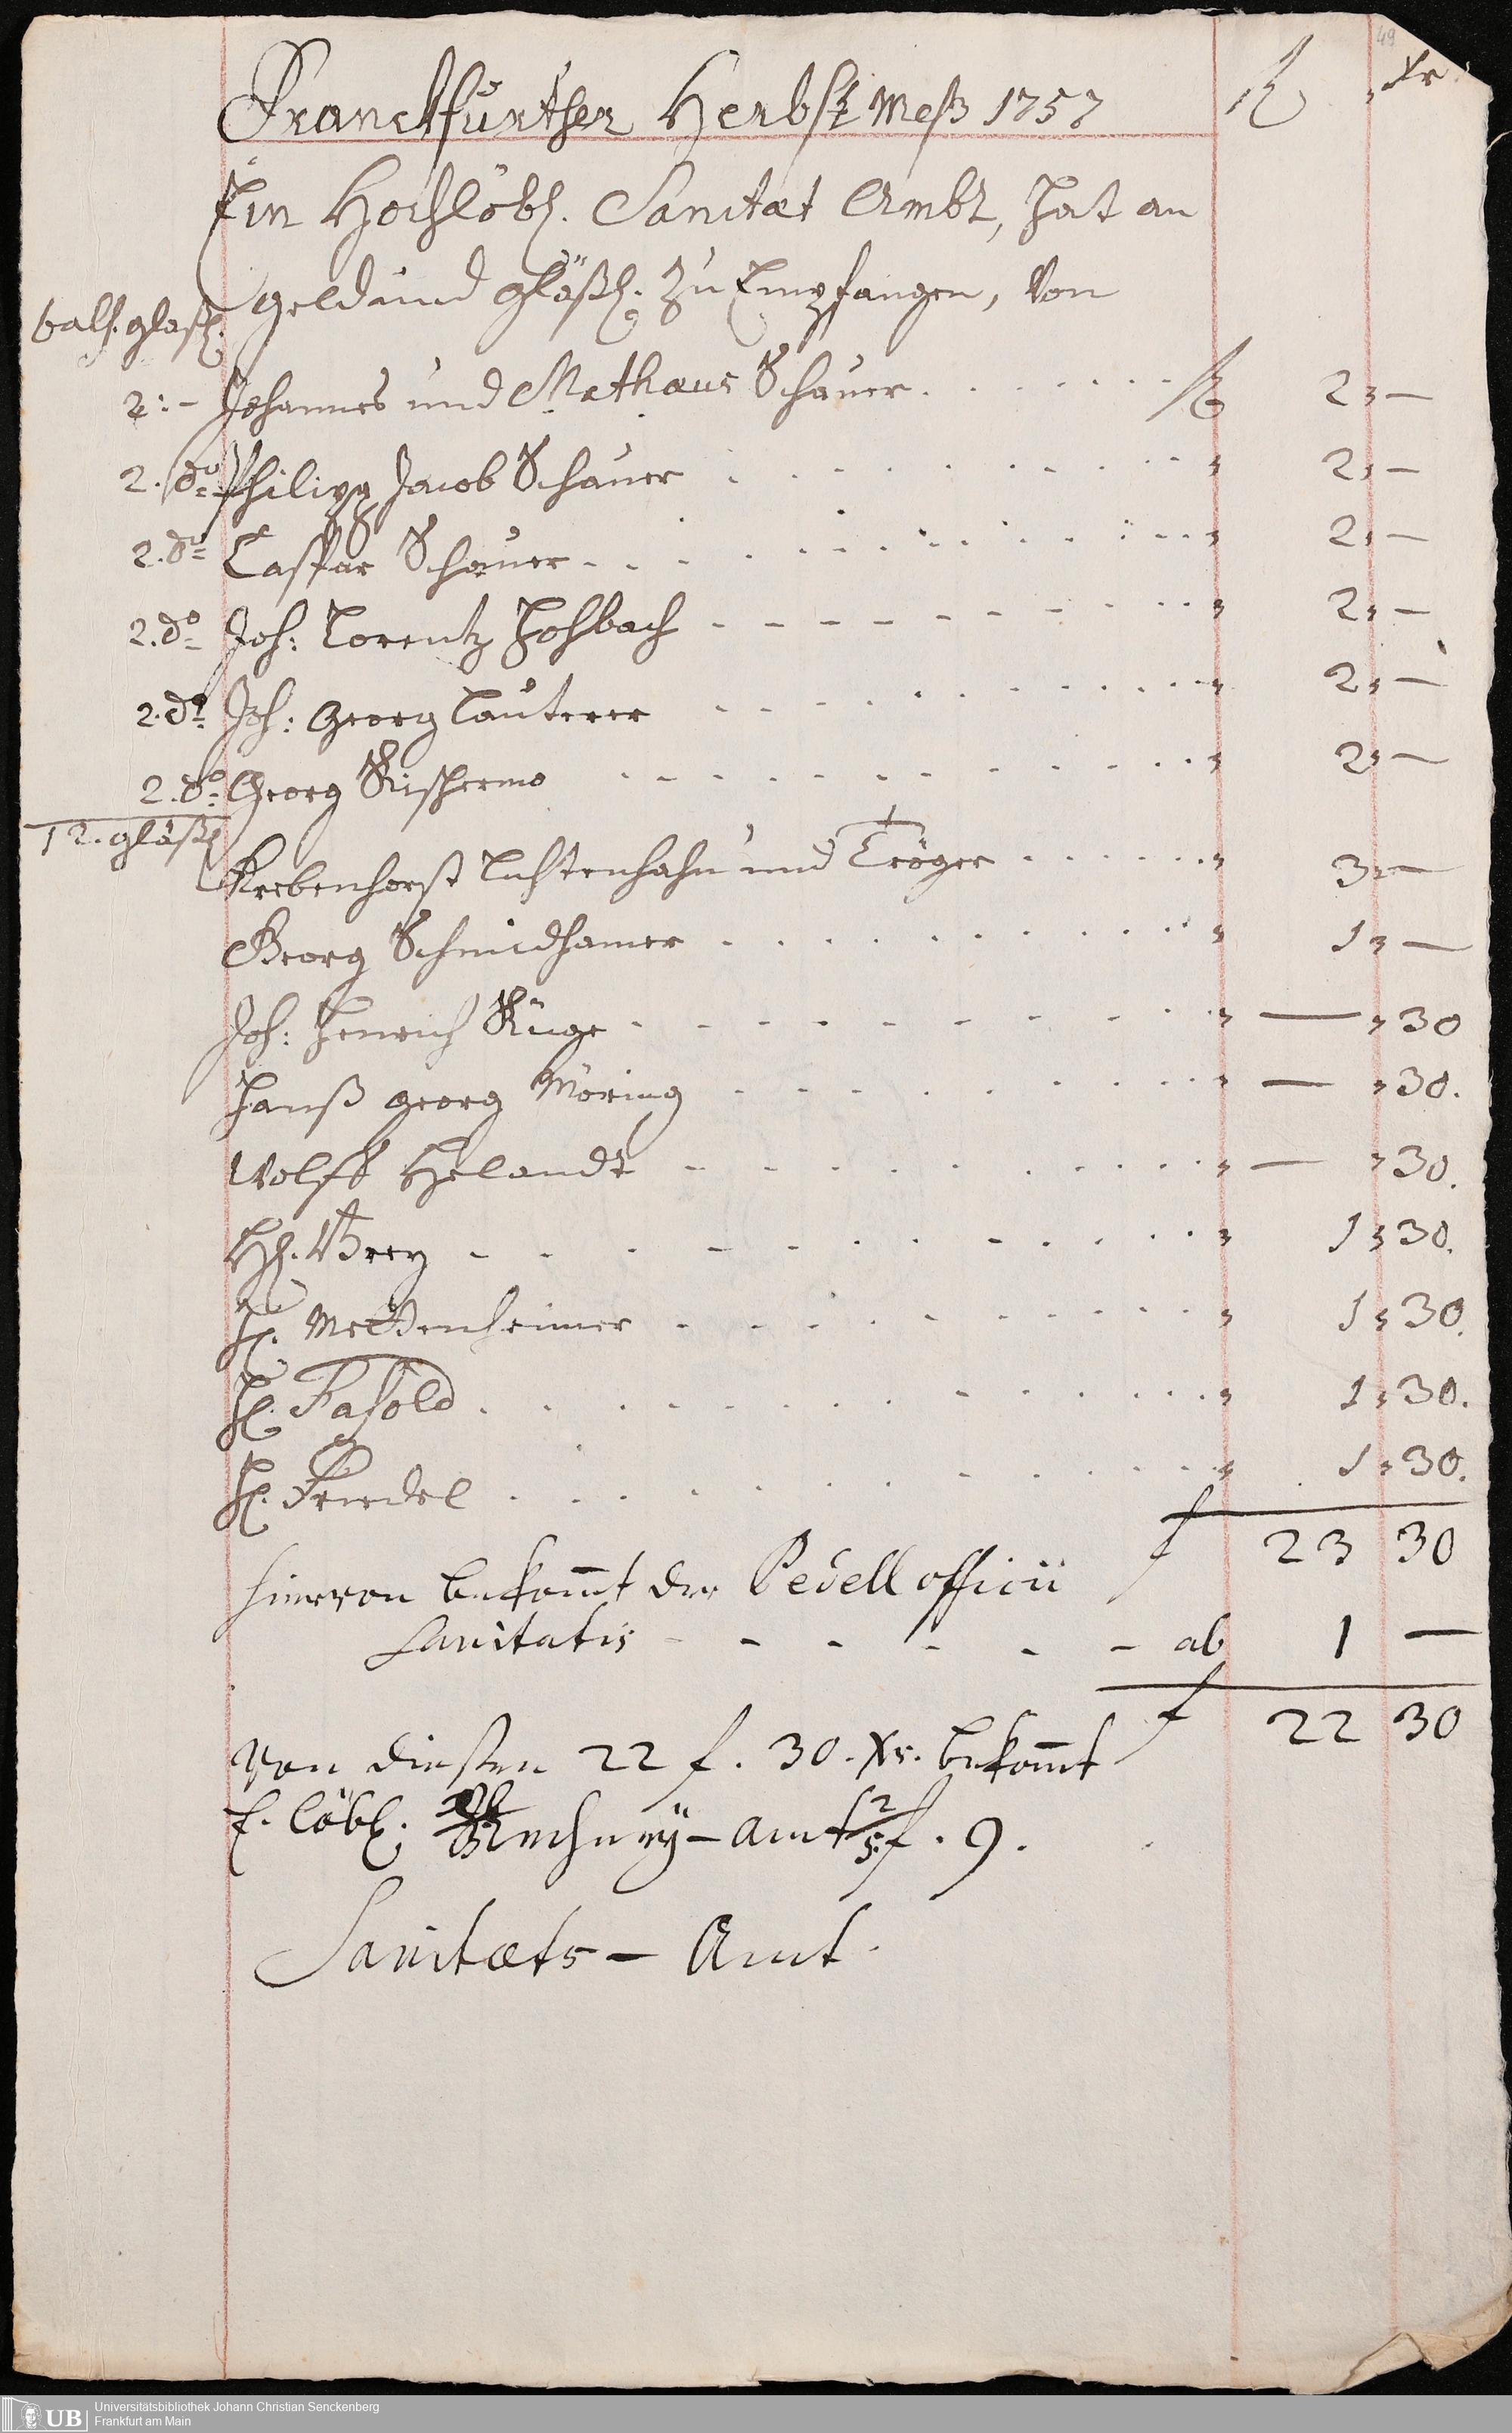 49
Franckfurther Herbst Meß 1757 f Xr.
Ein Hochlöbl. Sanitæt Ambt, hat an
Geld und gläßl. Zu Empfangen, Von
balß. glaßl.
2:- Johannes und Mathaeus Schauer . . . . . . . f 2 " —
2. do Philipp Jacob Schauer . . . . . . . . . . " 2 " —
2. do Caspar Schauer . . . . . . . . . . . . " 2 " —
2. do Joh: Lorentz Hohbach - - - - - - - . . . " 2 " —
2. do Joh: Georg Lauterer - - - - . . . . . . . " 2 " —
2. do Georg - - - - - - - - . . . " 2 " —
12. gläßl
Krebenhorst Lichtenhahn und Tröger . . . . . . . " 3 " —
Georg Schmidhamer . . . . . . . . . . . " 1 " —
Joh: Henrich Küge - - - - - - - - . . . " — " 30
Hanß Georg Möring - - - - - - . . . " — " 30.
Wolff Helandt - - - - - - . . . . " — " 30.
H. Grey - - - - - - . . . . . " 1 " 30.
H. Mettenheimer - - - - - . . . . " 1 " 30.
H. Fasold . . . . . . . . . . . . . " 1 " 30.
H. Friedel . . . . . . . . . . . . . " 1 " 30.
f 23 30
hiervon bekom̅t der Pedell officii
Sanitatis - - - - - - ab 1 —
f 22 30
Von dießen 22 f. 30. Xr. bekom̅t
E. löbl. Rechney-amt 2/5 f. 9.
Sanitæts - Amt.
UB
Universitätsbibliothek Johann Christian Senckenberg
Frankfurt am Main